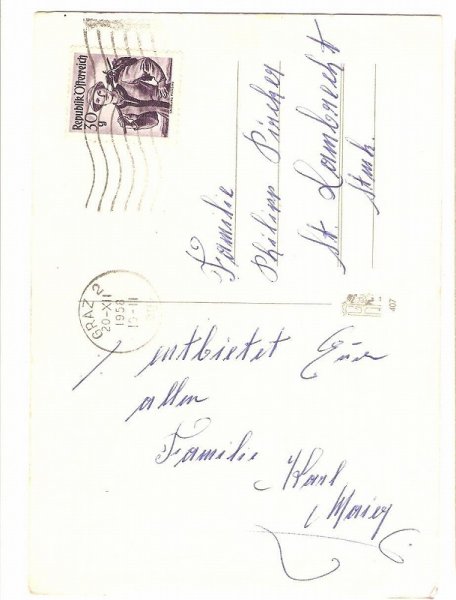 Republik Österreich
30 g
GRAZ 2
20-XII
1958
Familie
Philipp Pircher
St. Lambrecht
Stmk.
407
entbietet Euch
allen
Familie Karl
Maier